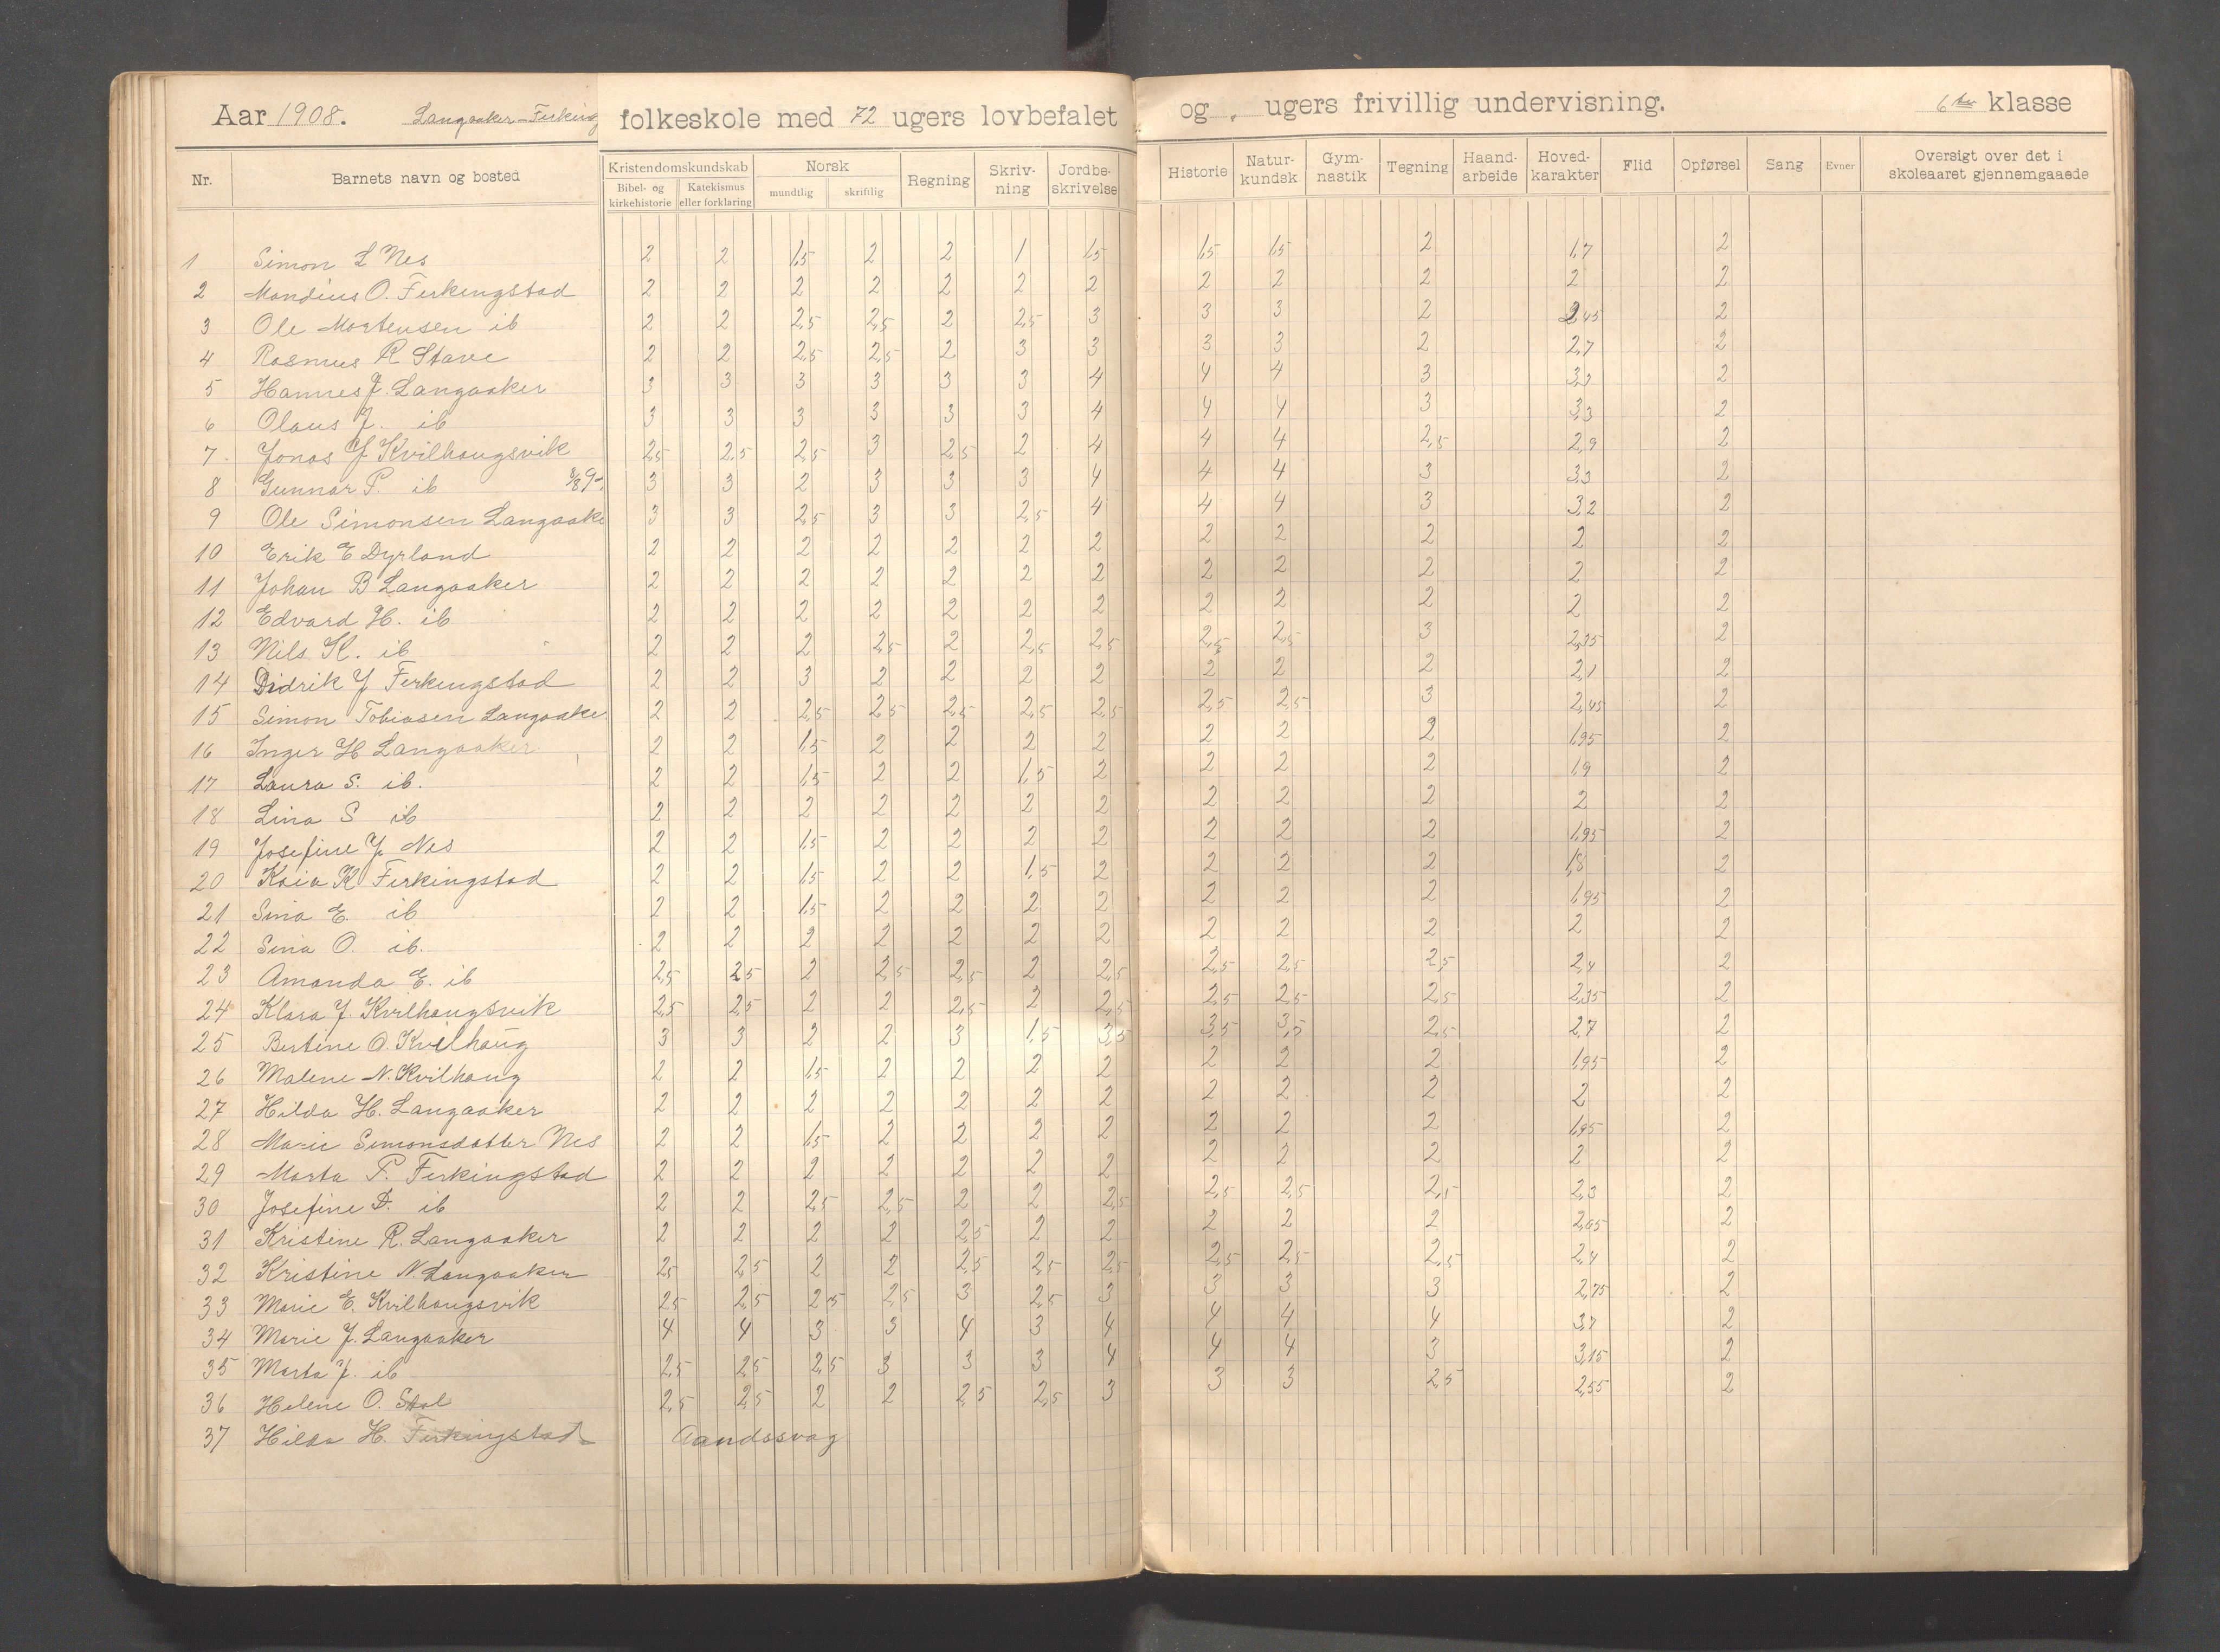 Aar 1908. Langaaker-Ferking folkeskole med 72 ugers lovbefalet og ugers frivillig undervisning. 6te klasse
Nr. Barnets navn og bosted Kristendomskundskab Bibel- og kirkehistorie Katekismus eller forklaring Norsk mundtlig skriftlig Regning Skriv-ning Jordbe-skrivelse Historie Natur-kundsk Gym-nastik Tegning Haand-arbeide Hoved-karakter Flid Opførsel Sang Evner Oversigt over det i skoleaaret gjennemgaaede
1 Simon L Nes 2 2 1,5 2 2 1 1,5 1,5 1,5 2 1,7 2
2 Mandius O. Ferkingstad 2 2 2 2 2 2 2 2 2 2 2 2
3 Ole Mortensen ib 2 2 2,5 2,5 2 2,5 3 3 3 2 2,45 2
4 Rasmus R Stave 2 2 2,5 2,5 2 3 3 3 3 2 2,7 2
5 Hannes J. Langaaker 3 3 3 3 3 3 4 4 4 3 3,3 2
6 Olaus J. ib 3 3 3 3 3 3 4 4 4 3 3,3 2
7 Jonas J Kvilhaugsvik 2,5 2,5 2,5 3 2,5 2 4 4 4 2,5 2,9 2
8 Gunnar P. ib 3 3 2 3 3 3 4 4 4 3 3,3 2
9 Ole Simonsen Langaake 3 3 2,5 3 3 2,5 4 4 4 3 3,2 2
10 Erik E Dyrland 2 2 2 2 2 2 2 2 2 2 2 2
11 Johan B Langaaker 2 2 2 2 2 2 2 2 2 2 2 2
12 Edvard H. ib 2 2 2 2 2 2 2 2 2 2 2 2
13 Nils K. ib 2 2 2 2,5 2 2,5 2,5 2,5 2,5 3 2,35 2
14 Didrik J Ferkingstad 2 2 3 2 2 2 2 2 2 2 2,1 2
15 Simon Tobiasen Langaake 2 2 2,5 2,5 2,5 2,5 2,5 2,5 2,5 3 2,45 2
16 Inger H Langaaker 2 2 1,5 2 2 2 2 2 2 2 1,95 2
17 Laura S. ib. 2 2 1,5 2 2 1,5 2 2 2 2 1,9 2
18 Lina S ib 2 2 2 2 2 2 2 2 2 2 2 2
19 Josefine J. Nes 2 2 1,5 2 2 2 2 2 2 2 1,95 2
20 Kaia K Ferkingstad 2 2 1,5 2 2 1,5 2 2 2 2 1,8 2
21 Sina E. ib 2 2 1,5 2 2 2 2 2 2 2 1,95 2
22 Sina O. ib. 2 2 2 2 2 2 2 2 2 2 2 2
23 Amanda E. ib 2,5 2,5 2 2,5 2,5 2 2,5 2,5 2,5 2,5 2,4 2
24 Klara J. Kvilhaugsvik 2,5 2,5 2 2 2,5 2 2,5 2,5 2,5 2,5 2,35 2
25 Bertine O. Kvilhaug 3 3 2 2 3 1,5 3,5 3,5 3,5 2,5 2,7 2
26 Malene N. Kvilhaug 2 2 1,5 2 2 2 2 2 2 2 1,95 2
27 Hilda H. Langaaker 2 2 2 2 2 2 2 2 2 2 2 2
28 Marie Simonsdatter Nes 2 2 1,5 2 2 2 2 2 2 2 1,95 2
29 Marta P. Ferkingstad 2 2 2 2 2 2 2 2 2 2 2 2
30 Josefine D. ib 2 2 2,5 2,5 2 2 2,5 2,5 2,5 2,5 2,3 2
31 Kristine R. Langaaker 2 2 2 2 2,5 2 2 2 2 2 2,05 2
32 Kristine N. Langaaker 2,5 2,5 2 2 2,5 2,5 2,5 2,5 2,5 2,5 2,4 2
33 Marie E. Kvilhaugsvik 2,5 2,5 2,5 2,5 3 2,5 3 3 3 3 2,75 2
34 Marie J. Langaaker 4 4 3 3 4 3 4 4 4 4 3,7 2
35 Marta J. ib 2,5 2,5 2,5 3 3 3 4 4 4 3 3,15 2
36 Helene O. Stol 2,5 2,5 2 2 2,5 2,5 3 3 3 2,5 2,55 2
37 Hilda H. Ferkingstad Aandssvag